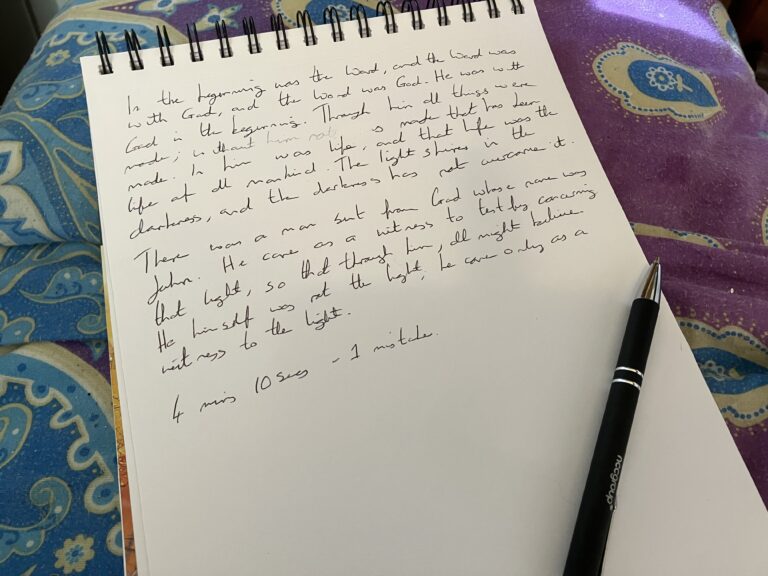 In the beginning was the Word, and the Word was
with God, and the Word was God. He was with
God in the beginning. Through him all things were
made; without him not
is made that has been
made. In him was life, and that life was the
life of all mankind. The light shines in the
darkness, and the darkness has not overcome it.
There was a man sent from God whose name was
John. He came as a witness to testify concerning
that light, so that through him, all might believe.
He himself was not the light; he came only as a
witness to the light.
4 mins 10 secs - 1 mistake.
noogroup